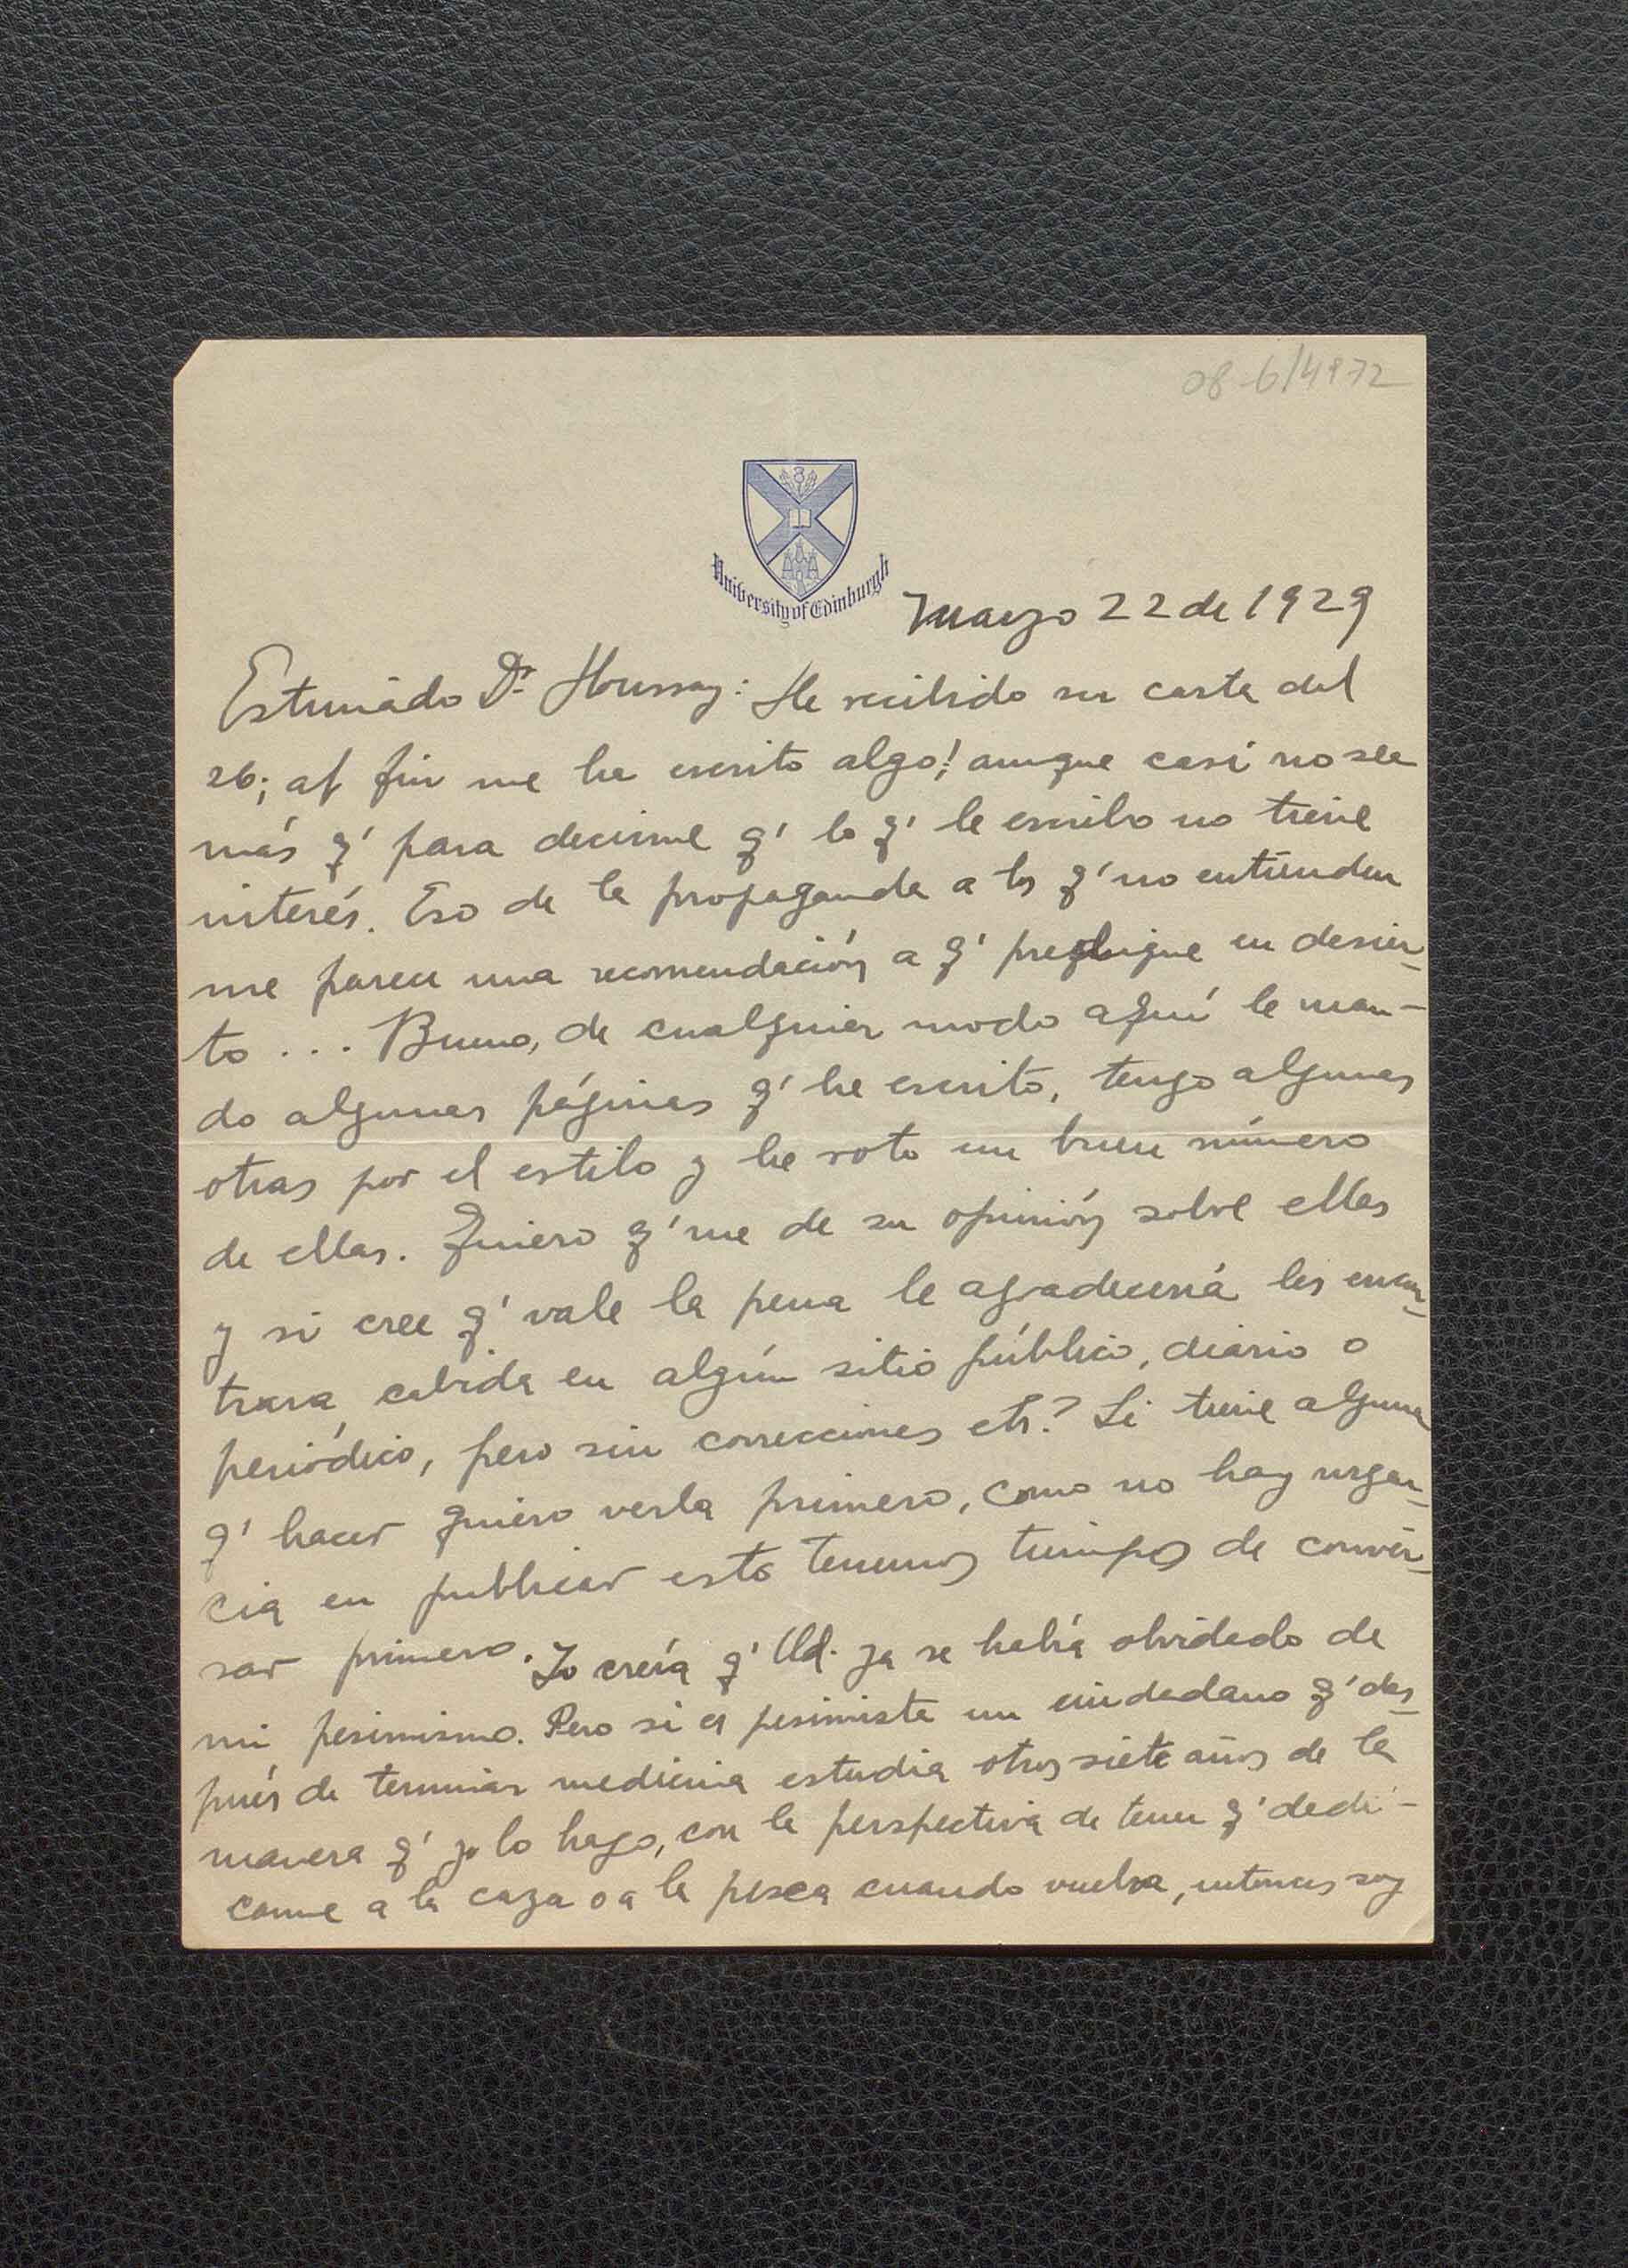 08-6/4872
University of Edinburgh
Marzo 22 de 1929
Estimado Dr. Houssay: He recibido su carta del
26; al fin me ha escrito algo! aunque casi no sea
más q' para decirme q' lo q' le escribo no tiene
interés. Eso de la propaganda a los q' no entienden
me parece una recomendación a q' predique en desier-
to ... Bueno, de cualquier modo aquí le man-
do algunas páginas q' he escrito, tengo algunas
otras por el estilo y he roto un buen número
de ellas. Quiero q' me de su opinión sobre ellas
y si cree q' vale la pena le agradecería les encon-
trara cabida en algún sitio público, diario o
periódico, pero sin correcciones etc.? Si tiene alguna
q' hacer quiero verla primero, como no hay urgen-
cia en publicar esto tenemos tiempo de conver-
sar primero. Yo creía q' Ud. ya se había olvidado de
mi pesimismo. Pero si es pesimista un ciudadano q' des-
pués de terminar medicina estudia otros siete años de la
manera q' yo lo hago, con la perspectiva de tener q' dedi-
carme a la caza o a la pesca cuando vuelva, entonces soy